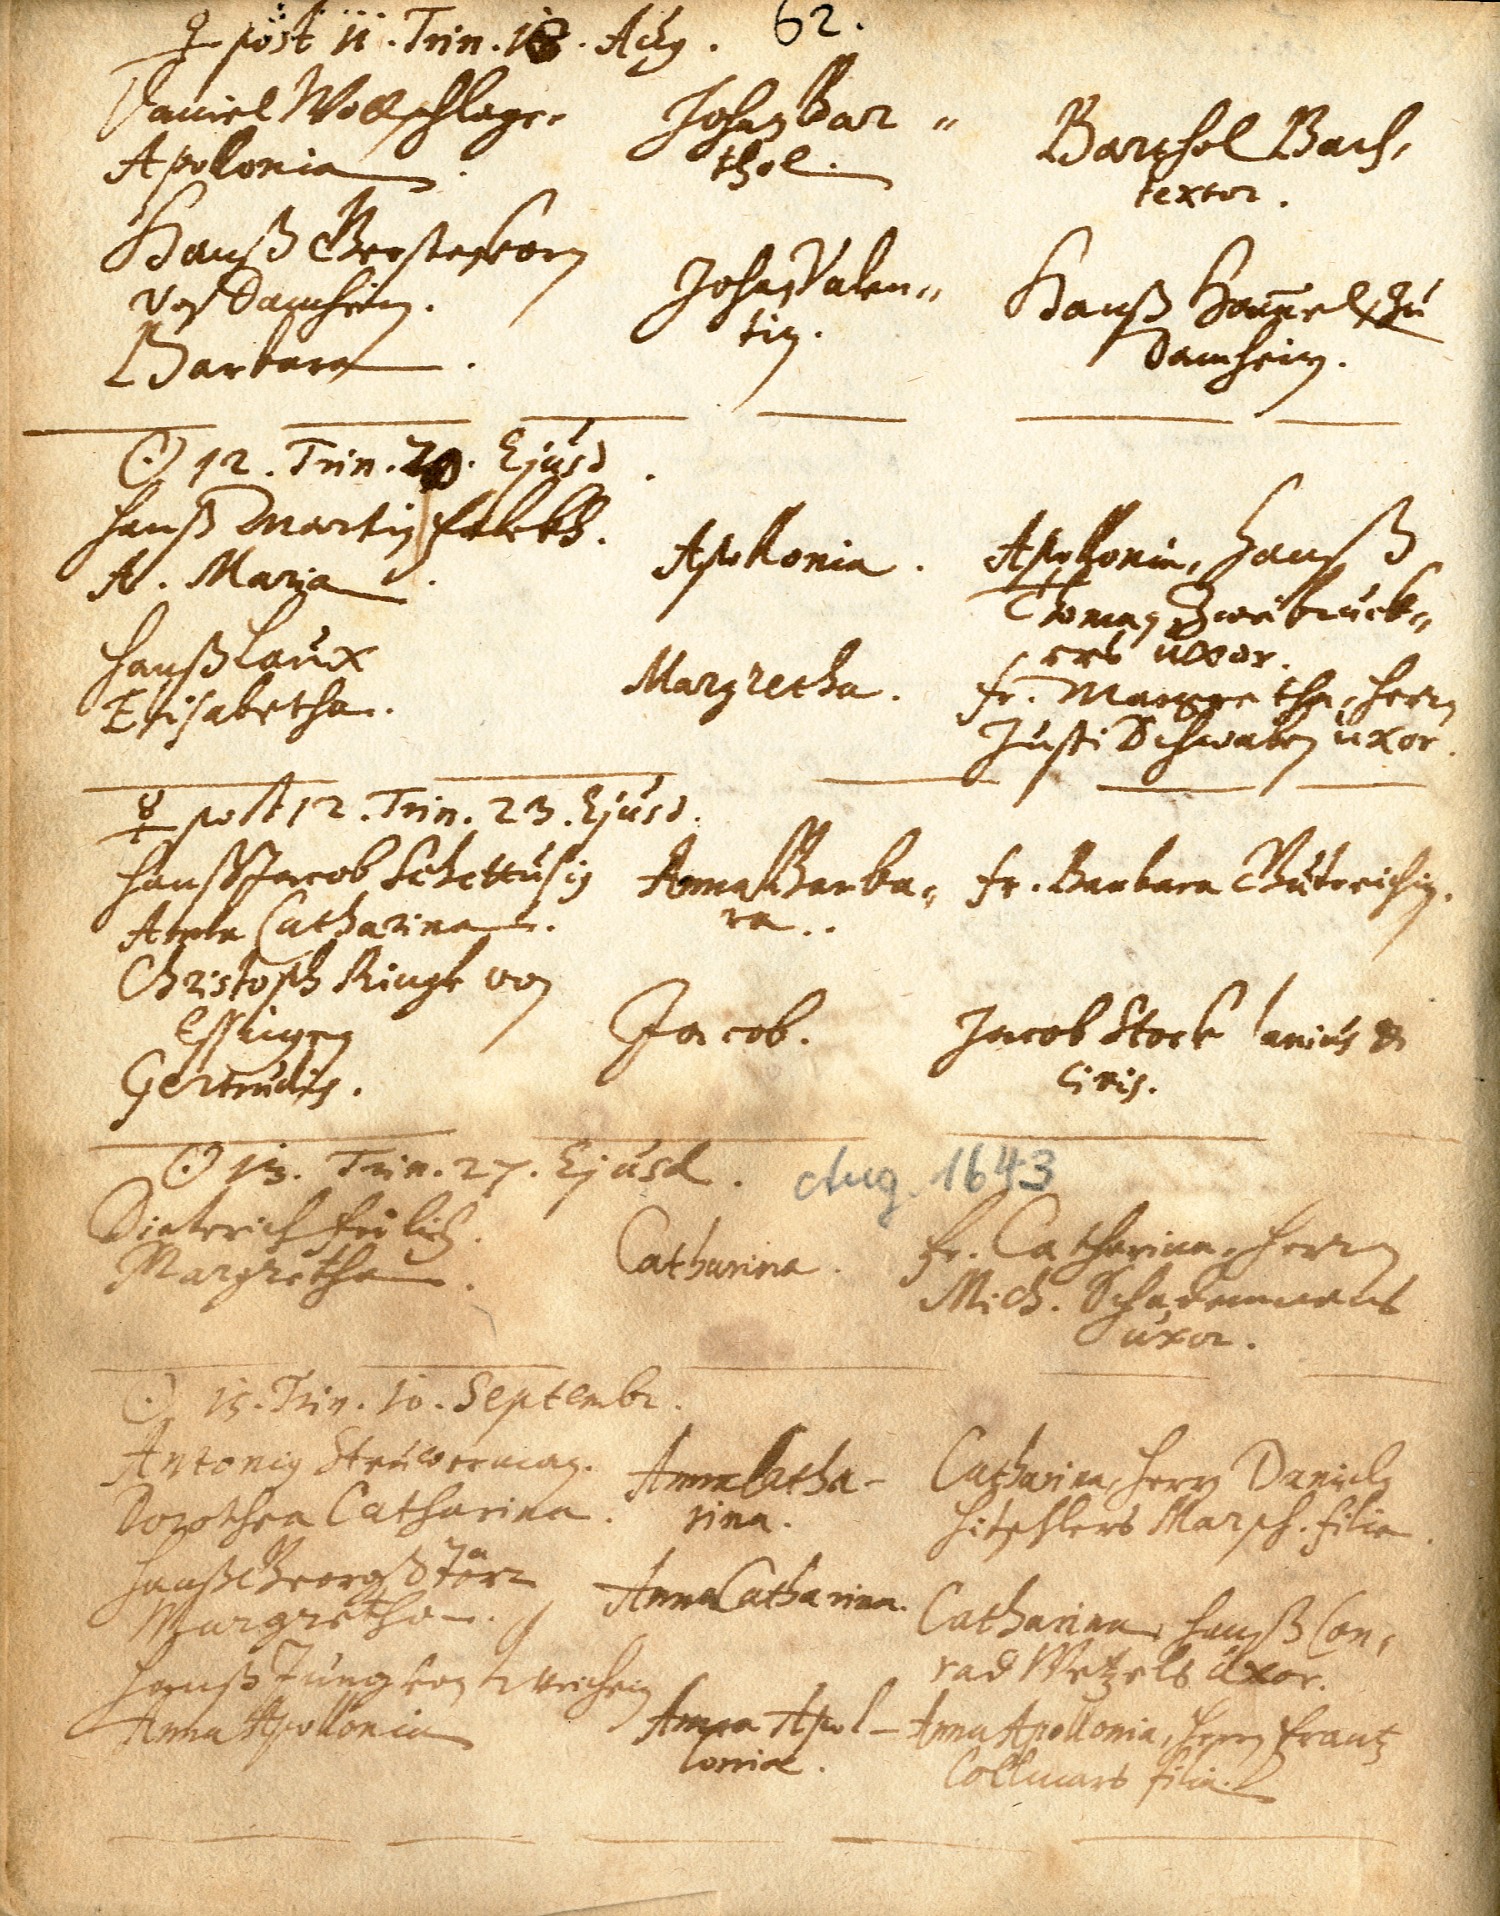 62.
♀ post 11. Trin. 18. Aug.
Daniel Wollschlager
Apollonia.
Johan Bar„
thol.
Barthol Bach,
textor.
Hanß Gerstenkorn
von Damheim.
Barbara.
Johan Valen„
tin.
Hanß Ham̄el zu
Damheim.
☉ 12. Trin. 20. Ejusd.
Hanß Martin
A. Maria.
Apollonia.
Apollonia, Hanß
Thoman Zweibruck„
ers uxor.
Hanß Laux
Elisabetha.
Margretha.
Fr. Margretha, Herrn
Justi Schwaben uxor.
☿ post 12. Trin. 23. Ejusd.
Hanß Jacob
Anna Catharina.
Anna Barba„
ra..
Fr. Barbara
Christoph Ringle von
Essingen
Gertrudis.
Jacob.
Jacob Stock lanius &
civis.
☉ 13. Trin. 27. Ejusd.
Aug. 1643
Dieterich Frölich.
Margretha.
Catharina.
Fr. Catharina, Herrn
Mich. Schademans
uxor.
☉ 15. Trin. 10. Septembr.
Antonig Struwerman.
Dorothea Catharina.
Anna Catha-
rina.
Catharina, Herrn Daniels
Hitschlers Marsch. filia.
Hanß Georg Stör
Margretha.
Anna Catharina.
Catharina, Hanß Con„
rad Wetzels uxor.
Hanß Jung von
Anna Apollonia
Anna Apol-
lonia.
Anna Apollonia, Herrn Frantz
Collmars filia.